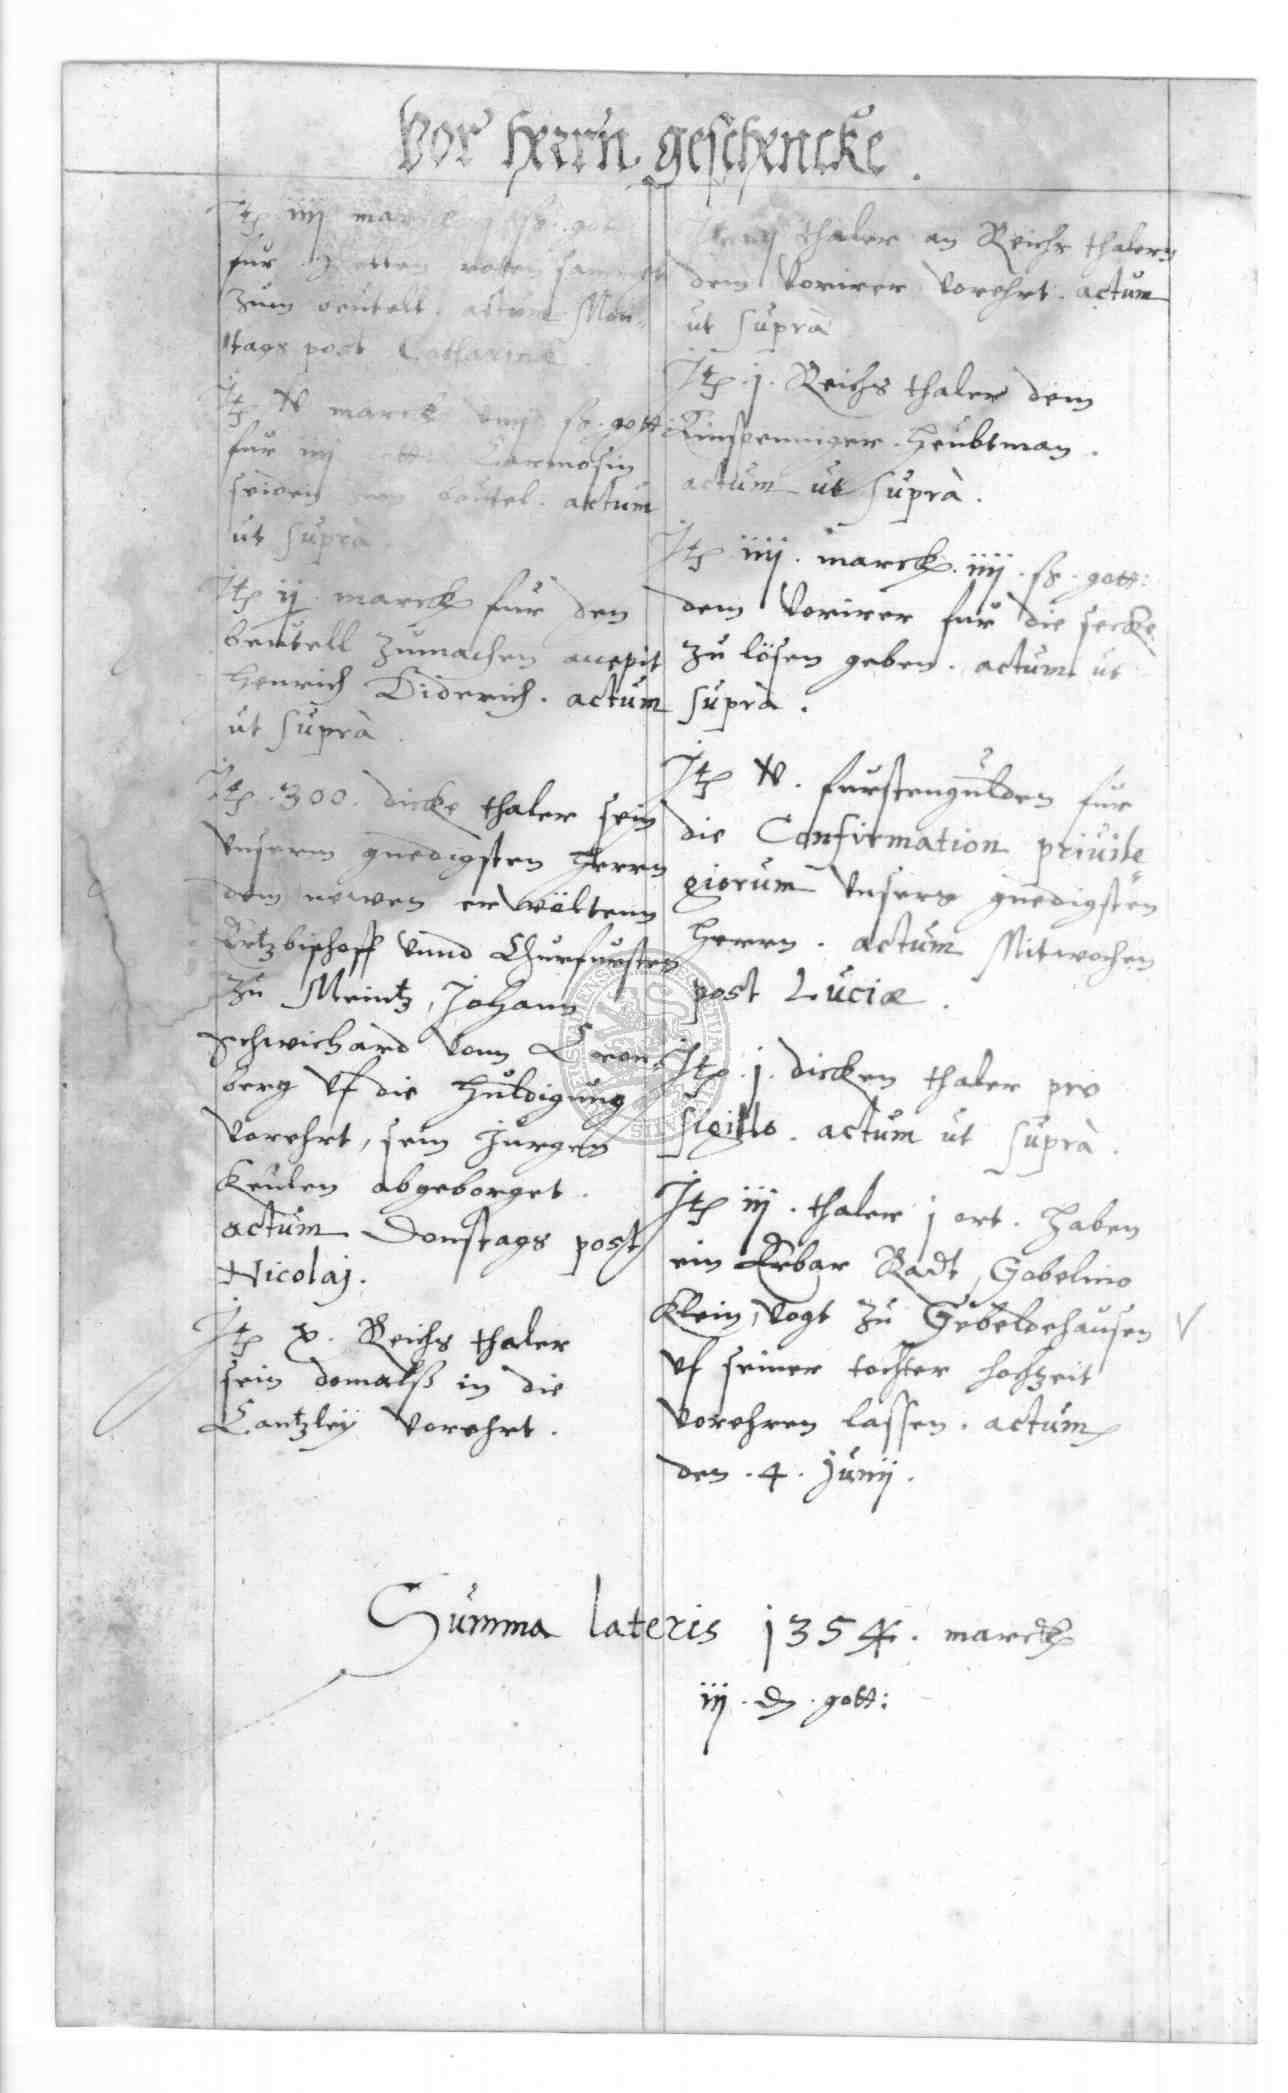 Vor herrn geschencke.
Itp iiij marck gott
fur roten sammet
zum beutell. actum Mon-
tags post Catharinæ.
Itp v marck ß. gott:
fur iiij Carmosin
seiden zum beutel. actum
ut suprà.
Itp ij. marck fur den
beutell zumachen accepit
Henrich Diderich. actum
ut suprà.
Itp. 300. dicke thaler sein
unserm gnedigsten herrn
dem newen erwöltenn
Ertzbischoff vnnd Churfursten
zu Meintz, Johann
Schwichard vonn Cron-
berg vf die huldigung
vorehrt, sein Jurgen
Keulen abgeborget.
actum Donstags post
Nicolaj.
Itp x. Reichs thaler
sein domalß in die
Cantzley vorehrt.
thaler an Reichs thalern
dem vorirer vorehrt. actum
ut suprà
Itp. j. Reichs thaler dem
Einspenniger. heubtman.
actum ut suprà.
Itp iiij. marck. iiij. ß. gott:
dem vorirer fur die secke
zu lösen geben. actum ut
suprà.
Itp v. furstengulden fur
die Confirmation priuile
giorum vnsers gnedigsten
herrn. actum Mitwochen
post Luciæ.
Itp. j. dicken thaler pro
sigillo. actum ut suprà.
Itp iij. thaler j ort. haben
ein Erbar Radt, Gobelino
Klein, Vogt zu Gebeldehausen
vf seiner tochter hochzeit
vorehren lassen. actum
den. 4. Junij.
Summa lateris 1354. marck
iij. d. gott: